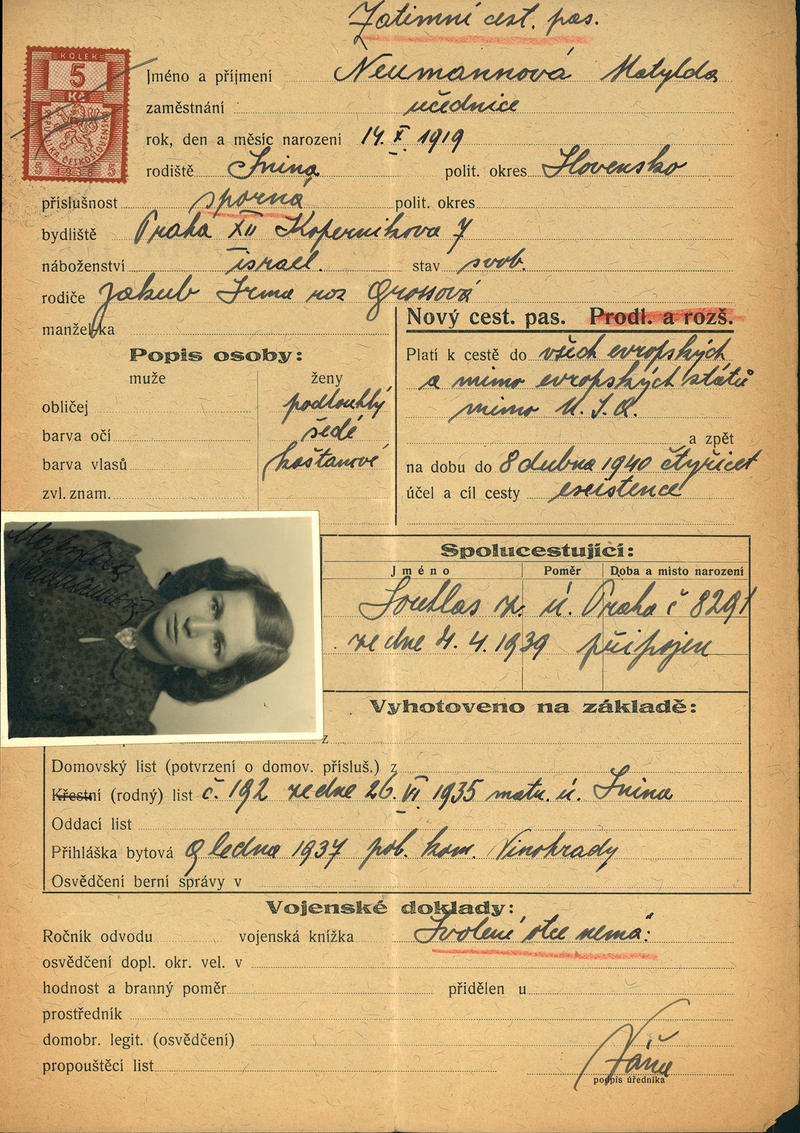 Zatimní cest. pas.
KOLEK
5
Kč
REPUBLIKA ČESKOSLOVENSKÁ
5 1938 5
Jméno a příjmení Neumannová Matylda
zaměstnání učednice
rok, den a měsíc narození 14. X. 1919
rodiště Snina polit. okres Slovensko
příslušnost sporná polit. okres
bydliště Praha XII Kopernikova 7
náboženství israel. stav svob.
rodiče Jakub Irma roz Grossová
manžel-ka
Nový cest. pas. Prodl. a rozš.
Popis osoby:
muže ženy
obličej podlouhlý
barva očí šedé
barva vlasů kaštanové
zvl. znam.
Platí k cestě do všech evropských
a mimo evropských států
mimo U.S.A.
a zpět
na dobu do 8 dubna 1940 čtyřicet
účel a cíl cesty existence
Matylda
Neumannová
Spolucestující:
Jméno Poměr Doba a místo narození
Souhlas ž. ú. Praha č 8291
ze dne 4. 4. 1939 připojen
Vyhotoveno na základě:
z
Domovský list (potvrzení o domov. přísluš.) z
Křestní (rodný) list č. 192 ze dne 26. VI 1935 matr. ú. Snina
Oddací list
Přihláška bytová 9 ledna 1937 pol. kom. Vinohrady
Osvědčení berní správy v
Vojenské doklady:
Ročník odvodu vojenská knížka Svolení otce nemá:
osvědčení dopl. okr. vel. v
hodnost a branný poměr přidělen u
prostředník
domobr. legit. (osvědčení)
propouštěcí list
podpis úředníka